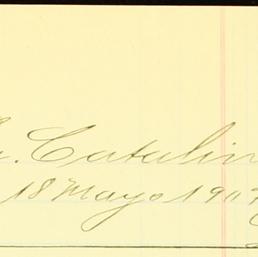 Catalin
18 Mayo 191